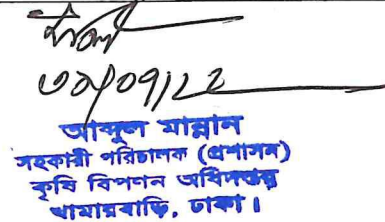 ৩১/০৭/২২
আব্দুল মান্নান
সহকারী পরিচালক (প্রশাসন)
কৃষি বিপণন অধিদপ্তর
খামারবাড়ি, ঢাকা।